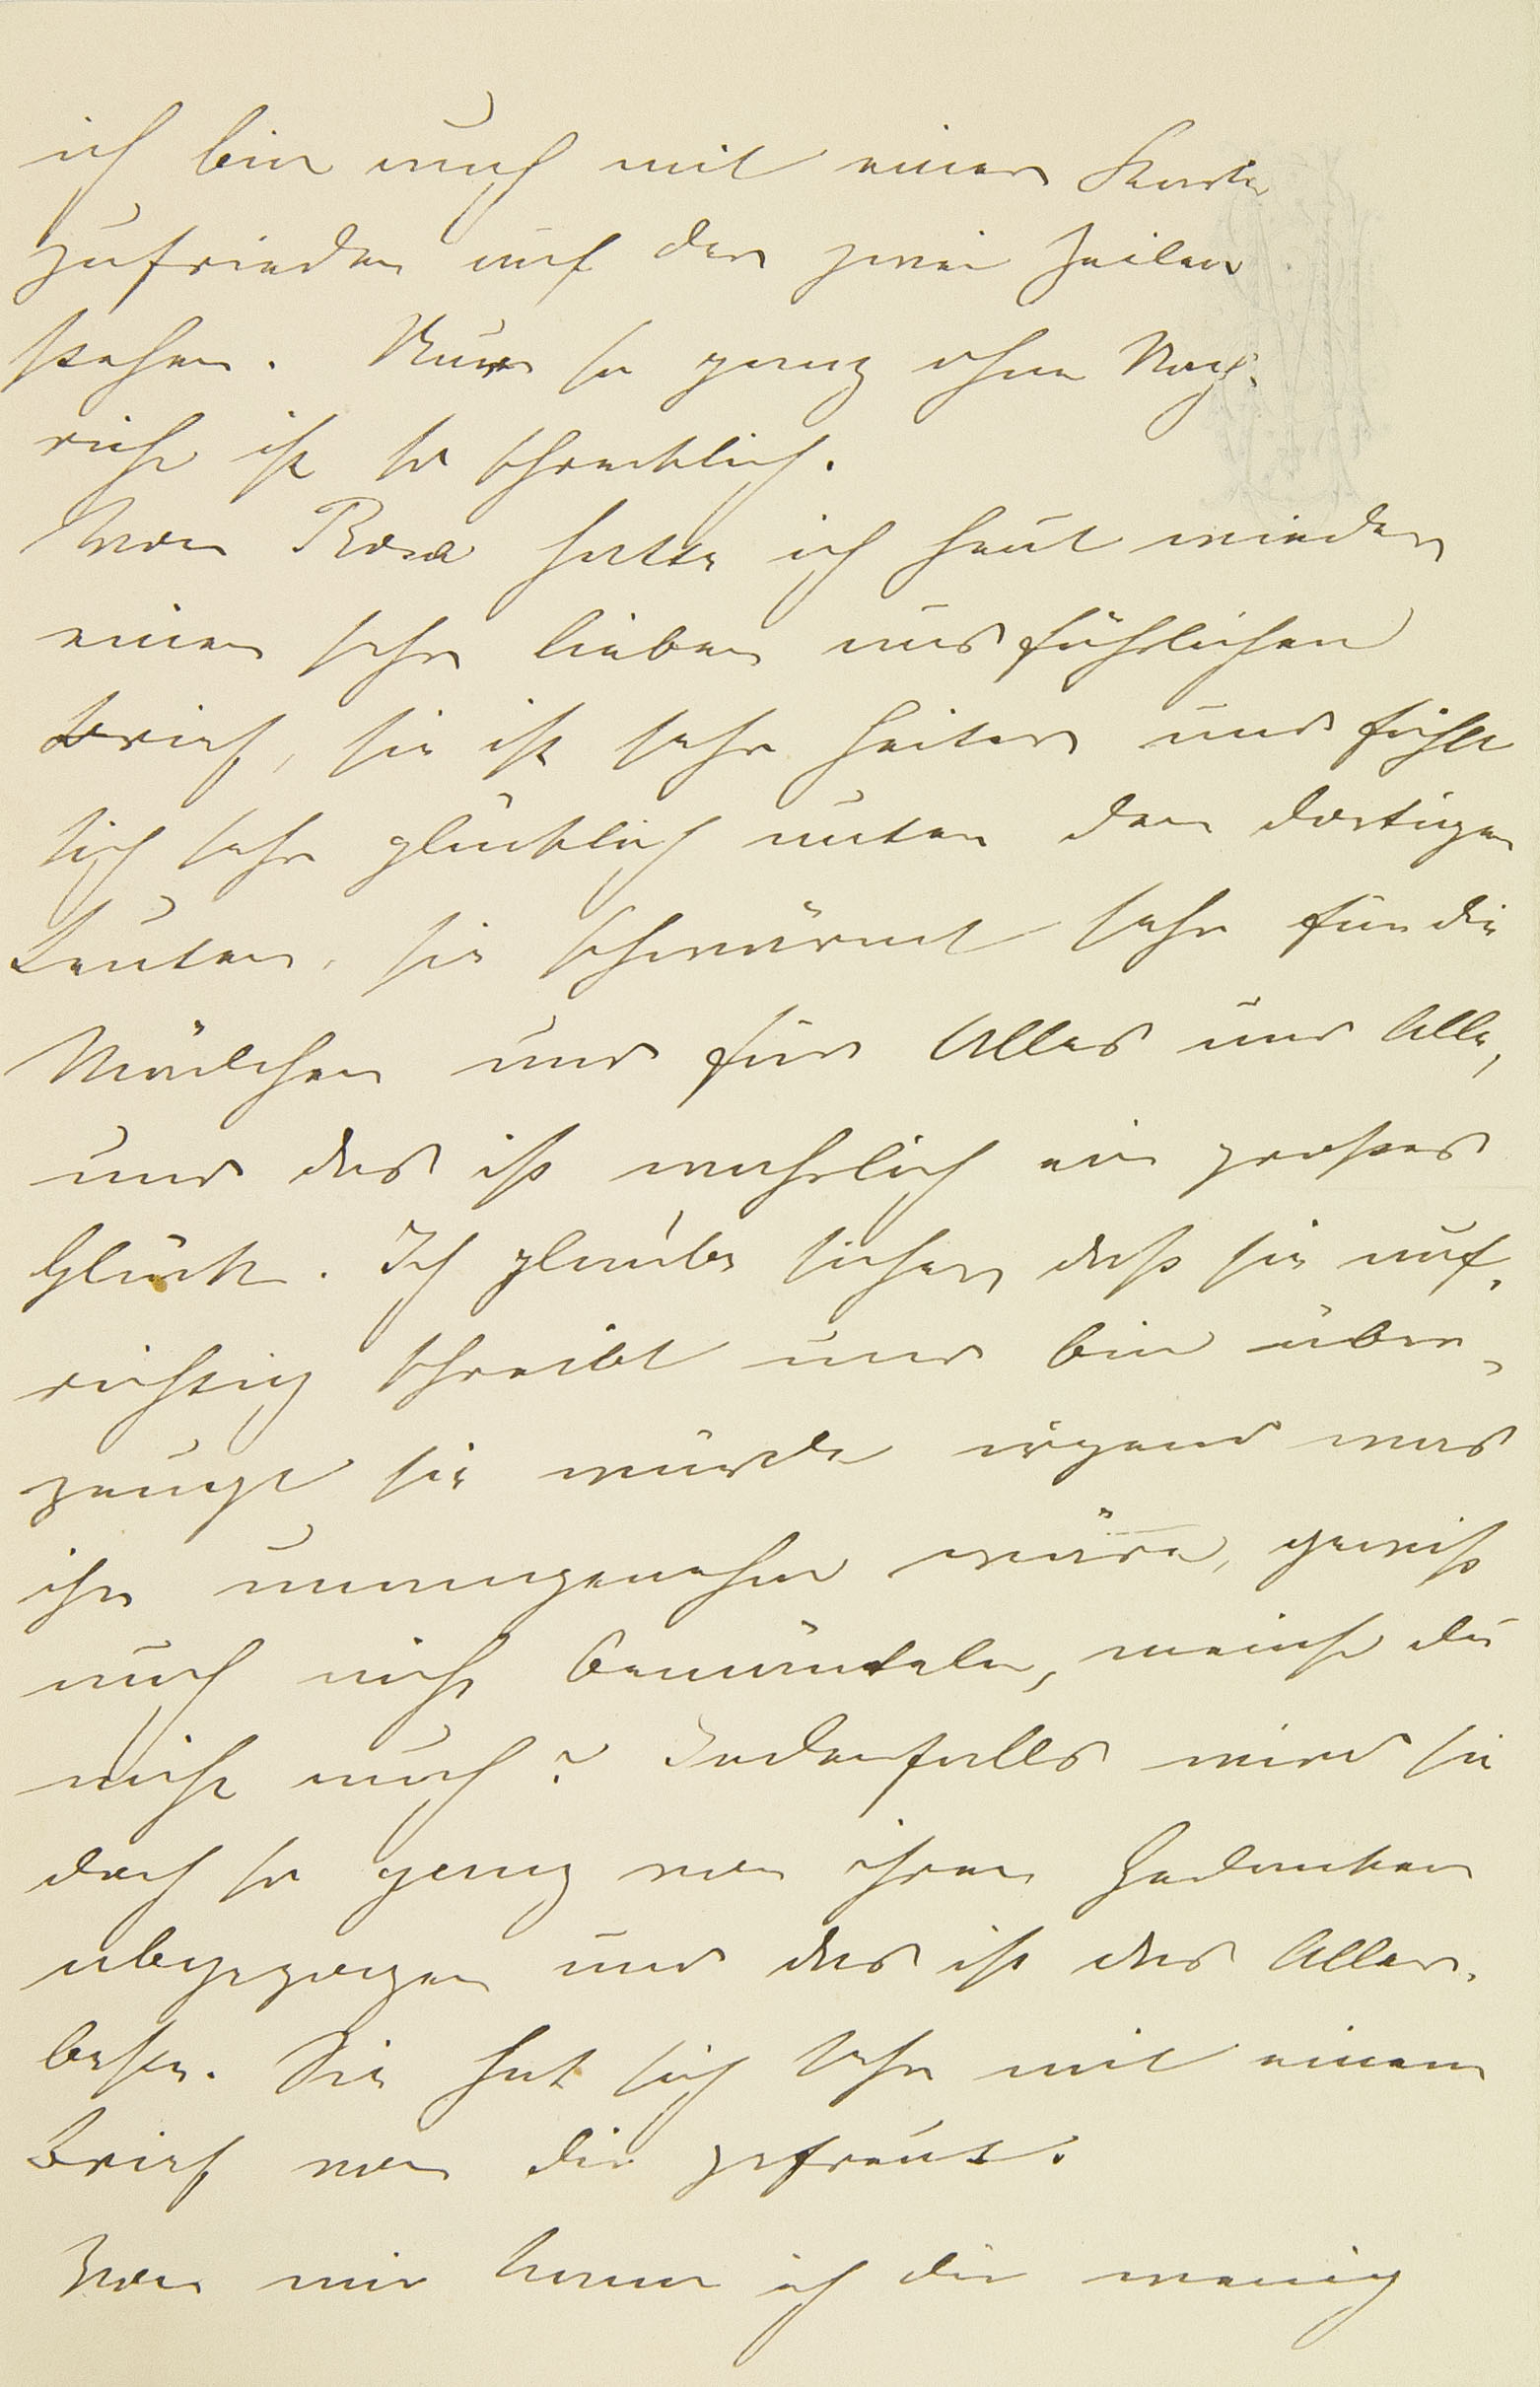 ich bin auch mit einer Karte
zufrieden auf der zwei Zeilen
stehen. Nur so ganz ohne Nach-
richt ist so schrecklich.
Von Rosa hatte ich heut wieder
einen sehr lieben ausführlichen
Brief, sie ist sehr heiter und fühlt
sich sehr glücklich unter den dortigen
Leuten, sie schwärmt sehr für die
Mädchen und für Alles und Alle,
und das ist wahrlich ein großes
Glück. Ich glaube sicher daß sie auf-
richtig schreibt und bin über-
zeugt sie würde irgend was
ihr unangenehm wäre, gewiß
auch nicht bemänteln, meinst du
nicht auch? Jedenfalls wird sie
doch so ganz von ihren Gedanken
abgezogen und das ist das Aller-
beste. Sie hat sich sehr mit einem
Brief von dir gefreut.
Von mir kann ich dir wenig